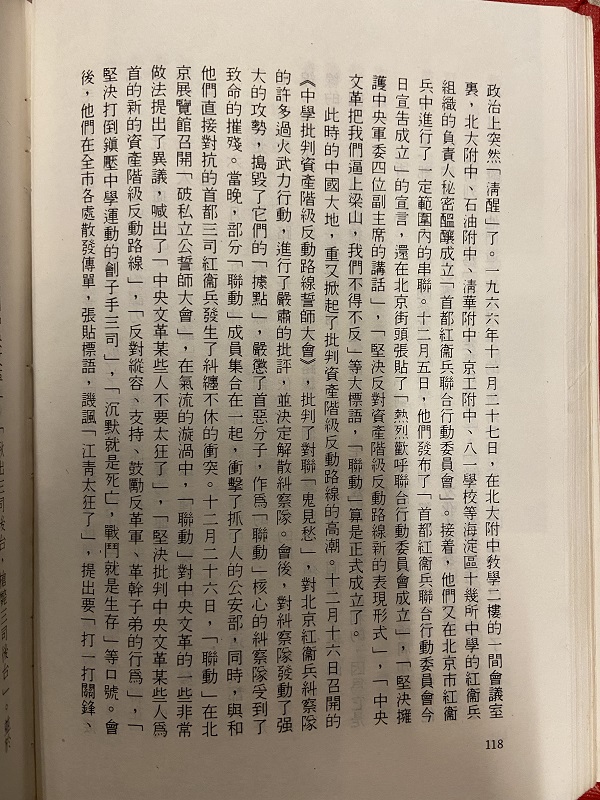 政治上突然「清醒」了。一九六六年十一月二十七日，在北大附中教學二樓的一間會議室
裏，北大附中、石油附中、清華附中、京工附中、八一學校等海淀區十幾所中學的紅衞兵
組織的負責人秘密醞釀成立「首都紅衞兵聯合行動委員會」。接着，他們又在北京市紅衞
兵中進行了一定範圍內的串聯。十二月五日，他們發布了「首都紅衞兵聯合行動委員會今
日宣告成立」的宣言，還在北京街頭張貼了「熱烈歡呼聯合行動委員會成立」，「堅決擁
護中央軍委四位副主席的講話」，「堅決反對資產階級反動路線新的表現形式」，「中央
文革把我們逼上梁山，我們不得不反」等大標語，「聯動」算是正式成立了。
此時的中國大地，重又掀起了批判資產階級反動路線的高潮。十二月十六日召開的
《中學批判資產階級反動路線誓師大會》，批判了對聯「鬼見愁」，對北京紅衞兵糾察隊
的許多過火武力行動，進行了嚴肅的批評，並決定解散糾察隊。會後，對糾察隊發動了强
大的攻勢，搗毀了它們的「據點」，嚴懲了首惡分子，作爲「聯動」核心的糾察隊受到了
致命的摧殘。當晚，部分「聯動」成員集合在一起，衝擊了抓了人的公安部，同時，與和
他們直接對抗的首都三司紅衞兵發生了糾纏不休的衝突。十二月二十六日，「聯動」在北
京展覽館召開「破私立公誓師大會」，在氣流的漩渦中，「聯動」對中央文革的一些非常
做法提出了異議，喊出了「中央文革某些人不要太狂了」，「堅決批判中央文革某些人爲
首的新的資產階級反動路線」，「反對縱容、支持、鼓勵反革軍、革幹子弟的行爲」，「
堅決打倒鎭壓中學運動的劊子手三司」，「沉默就是死亡，戰鬥就是生存」等口號。會
後，他們在全市各處散發傳單，張貼標語，譏諷「江青太狂了」，提出要「打一打關鋒、
118